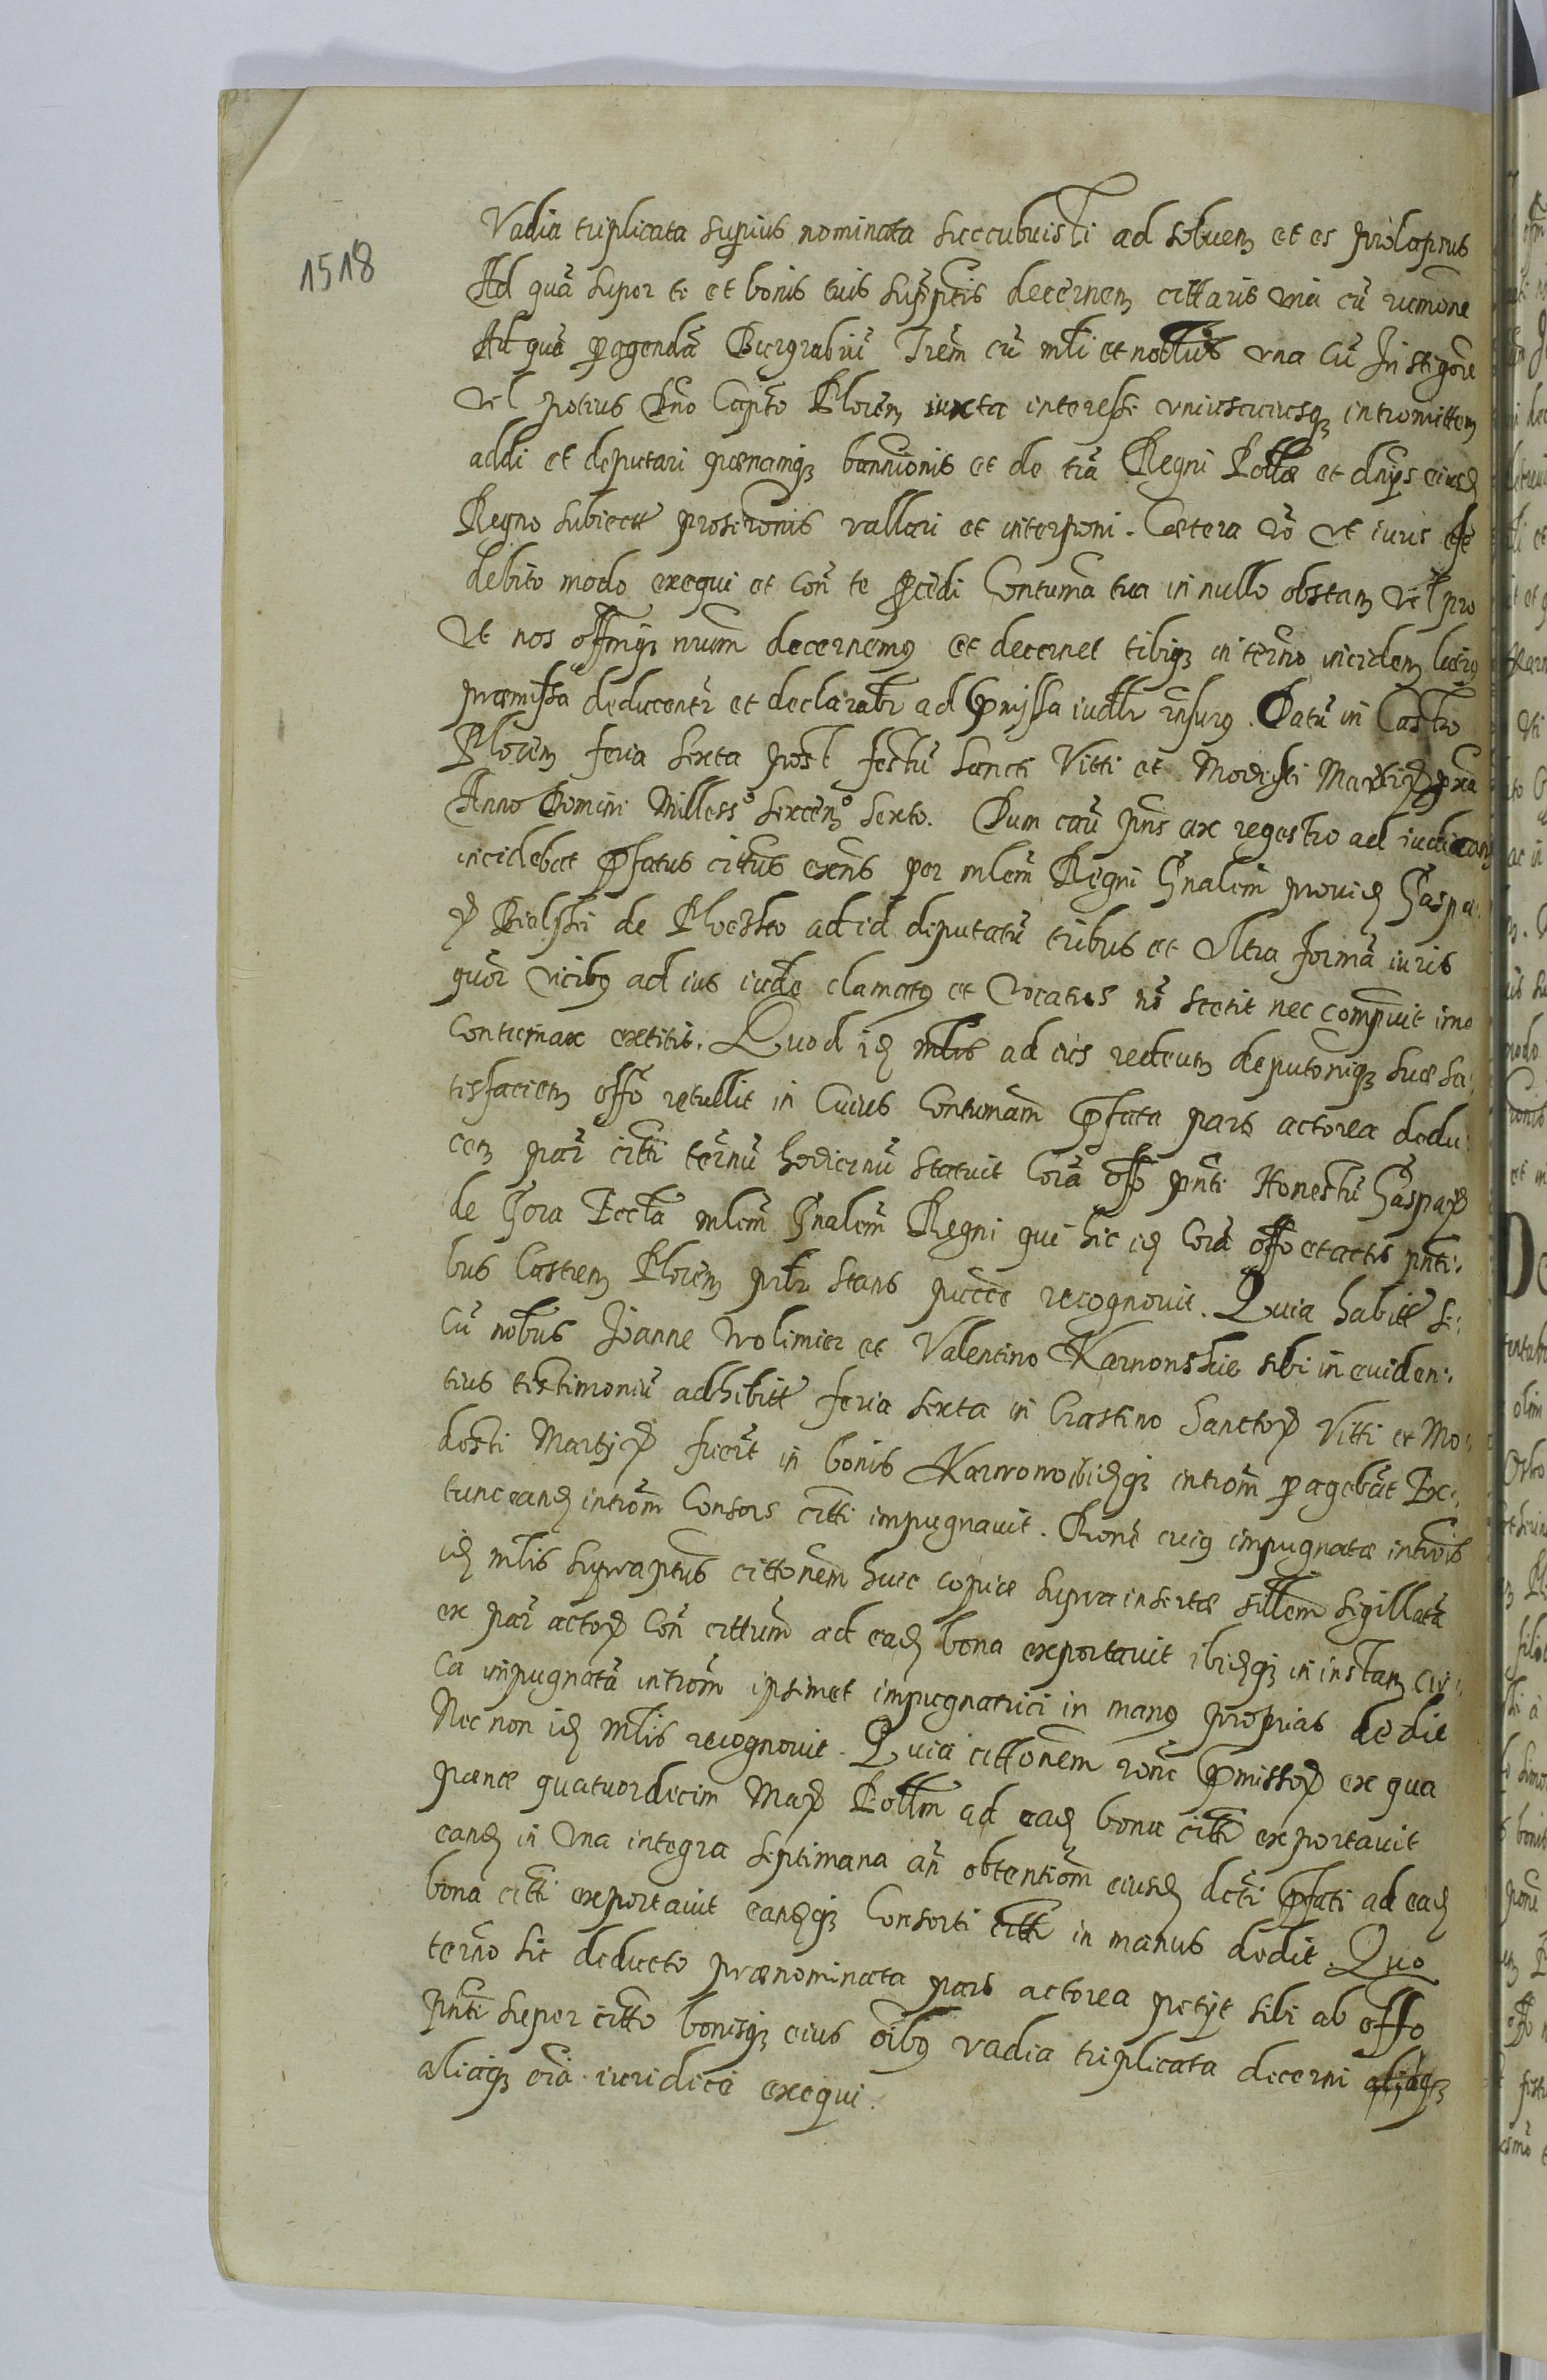 1518
Vadia triplicata superius nominata succubuisti ad solven et es prolapsus
Ad quã super te et bonis tuis supptis decernen cittaris una cũ rumone
Ad quã peragendã Burgrabiũ Trem cũ mli et nobilius una cũ Instigore
vel potius Dno Capto Plocen iuxta interesse uniuscuiusq intromitten
addi et deputari pœnamq bannionis et de trã Regni Pollæ et dnys eiusd
Regno subiectt proscronis vallari et interponi. Cætera vo ut iuris est
debito modo exequi et Con te procedi Contuma tua in nullo obstan vel pro
Ut nos offmq nrum decernemq et decernet tibiq in terno inciden latiq
præmissa deducentr et declarabr ad præmissa iudlr rnsurq. Datũ in Castro
Plocen feria sexta post festũ Sancti Vitti et Modesti Martirũ
Anno Domini Milless° sexcen° sexto. Dum cau pns ex regestro ad iudican
incidebat præfatus cittus exns per mlem Regni Gnalem provid Gaspa
rũ Bielski de Ploczko ad id deputatũ tribus et Ultra formã iuris
quor vicibq ad ius iudle clamatq et vocatus nõ stetit nec compuit imo
contumax extitit. Quod id mlis ad ius redeun deputoniq suæ sa:
tisfacien offo retullit in Cuius Contumam præfata pars actorea dedu:
cen par citti ternũ hodiernũ statuit Corã offo pnti Honestũ Gaspar
de Gora Recta mlem Gnalem Regni qui hic id Corã offo et actis pnti:
bus Castren Plocen pnlr stans publce recognovit. Quia habitt se:
cũ nobus Joanne Wolimier et Valentino Karwonskie sibi in eviden:
tius testimoniũ adhibitt feria sexta in Crastino Sanctor Vitti et Mo:
desti Martyr fuerit in bonis Karwowo ibidq introm peragebat Ex:
tunc eand introm Consors citti impugnavit. Rone cuiq impugnatæ intronis
id mlis supraptus cittonem huic copiæ supra insertæ sillem sigillatã
ex par actor Con cittum ad ead bona exportavit ibidq in instan cir:
ca impugnatã introm ipsimet impugnatrici in manq proprias dedit
Nec non id mlis recognovit. Quia cittonem rone præmissor ex qua
pœnæ quatuordecim Mar Pollm ad ead bona citti exportavit
eand in una integra septimana an obtentiom eiusd dcti præfati ad ead
bona citti exportavit eandq Consorti citti in manus dedit. Quo
terno sic deducto prænominata pars actorea petyt sibi ab offo
pnti super citto bonisq eius oibq vadia triplicata decerni
aliaq oia iuridice exequi.